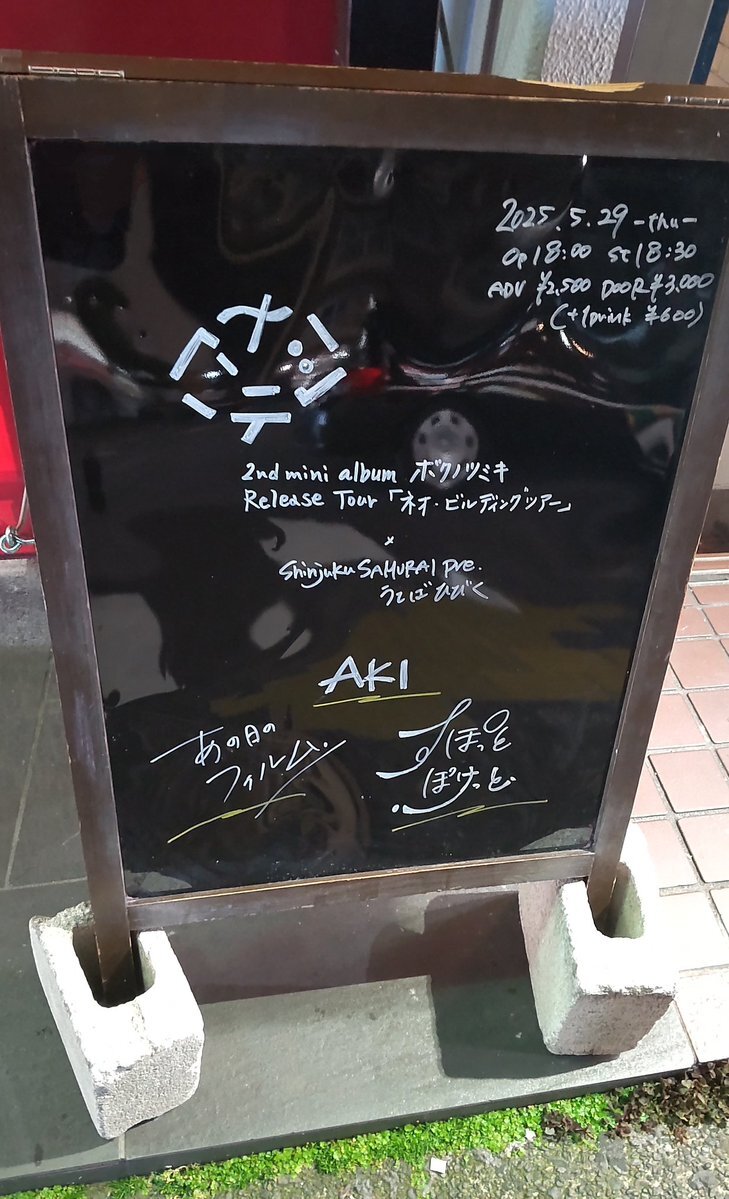 2025.5.29 -thu-
Op18:00 St18:30
ADV ¥2,500 DOOR ¥3,000
(+1Drink ¥600)
2nd mini album ボクノツミキ
Release Tour「ネオ・ビルディングツアー」
×
Shinjuku SAMURAI pre.
うてばひびく
AKI
あの日の
フィルム.
すぽっと
ぽけっと。